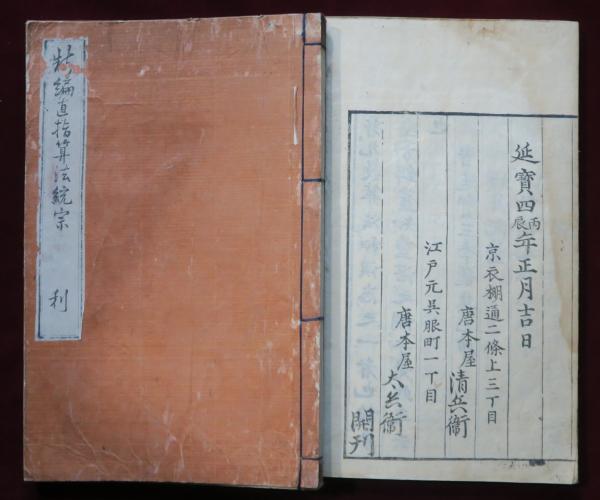 新編直指算法統宗 利
延寶四丙辰年正月吉日
京衣棚通二條上三丁目
唐本屋清兵衞
江戸元呉服町一丁目
唐本屋太兵衞
開刊